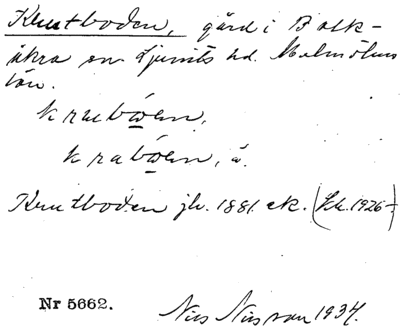 Krutboden, gård i Balk-
åkra sn Ljunits hd. Malmöhus
län.
krubo̲en,
krabo̲en, ä.
Krutboden jb. 1881 ek. (Lk. 1926-)
Nr 5662.
Nils Nilsson 1934.